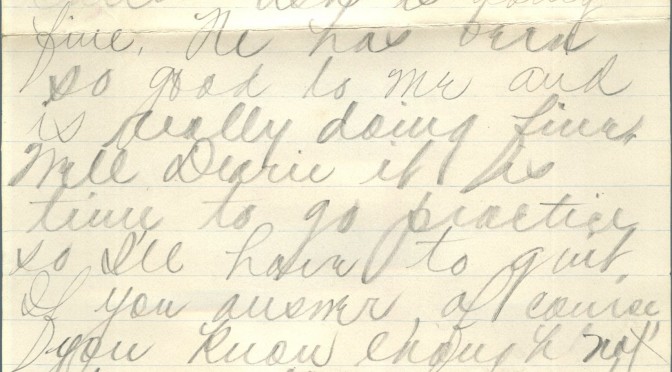 is
fine. He has been
so good to me and
is really doing fine.
Well Dearie it is
time to go practice
so I'll have to quit.
If you answer, of course
you know enough not